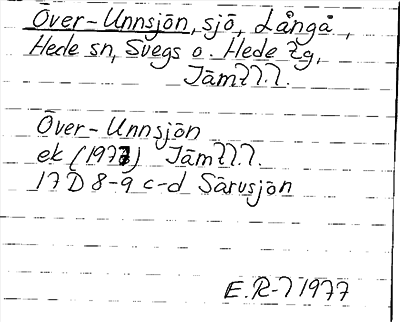 Över-Unnsjön, sjö, Långå,
Hede sn, Svegs o. Hede tg,
Jämtl.l.
Över-Unnsjön
ek (1977) Jämtl.l.
17D 8-9 c-d Särvsjön
E.R-l 1977